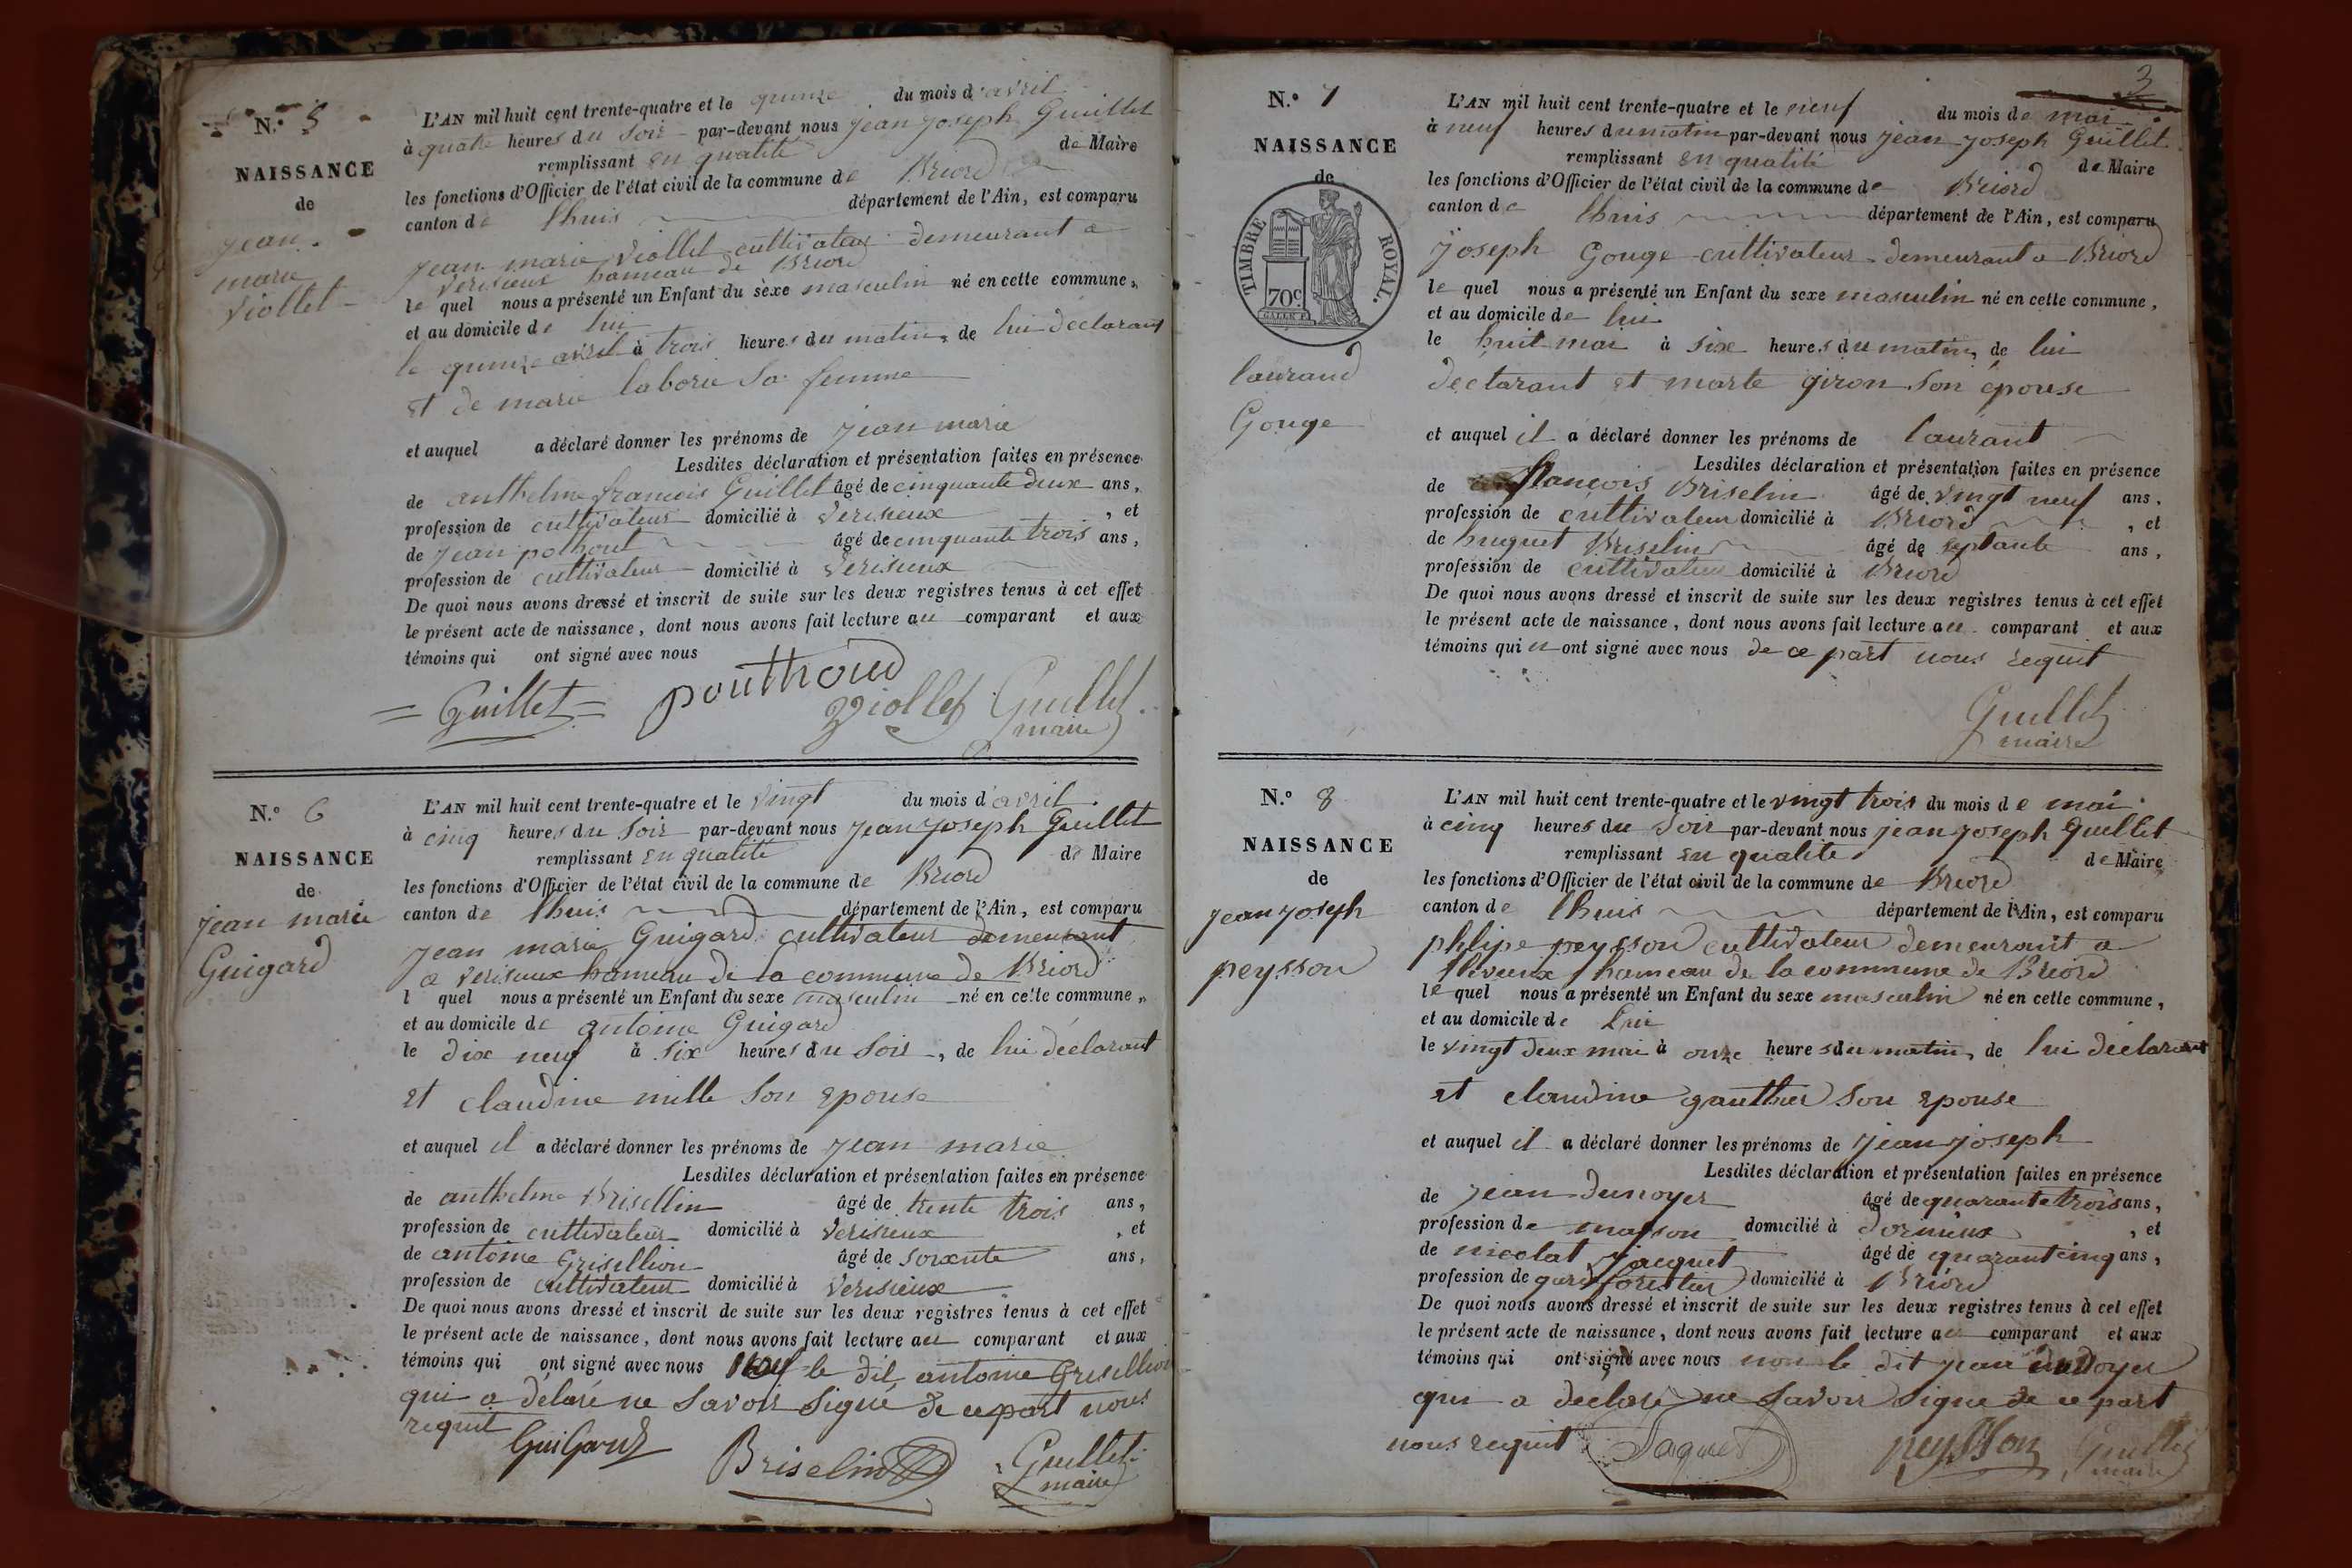 N.° 5
NAISSANCE
de
jean
marie
Viollet
L'AN mil huit cent trente-quatre et le quinze du mois d'avril
à quatre heures du soir par-devant nous jean joseph Guillet
remplissant en qualité de Maire
les fonctions d'Officier de l'état civil de la commune de Briord
canton de lhuis département de l'Ain, est comparu
jean marie Viollet cultivateur demeurant a
Verisieux hameau de Briord
le quel nous a présenté un Enfant du sèxe masculin né en cette commune,
et au domicile de lui
le quinze avril à trois heures du matin, de lui déclarant
et de marie laborie sa femme
et auquel a déclaré donner les prénoms de jean marie
Lesdites déclaration et présentation faites en présence
de anthelme francois Guillet âgé de cinquante deux ans,
profession de cultivateur domicilié à Verisieux , et
de jean pothout âgé de cinquante trois ans,
profession de cultivateur domicilié à Verisieux
De quoi nous avons dressé et inscrit de suite sur les deux registres tenus à cet effet
le présent acte de naissance, dont nous avons fait lecture au comparant et aux
témoins qui ont signé avec nous
Guillet pouthoud Viollet Guillet
maire
N.° 6
NAISSANCE
de
jean marie
Guigard
L'AN mil huit cent trente-quatre et le vingt du mois d'avril
à cinq heures du soir par-devant nous jean joseph Guillet
remplissant en qualité de Maire
les fonctions d'Officier de l'état civil de la commune de Briord
canton de lhuis département de l'Ain, est comparu
jean marie Guigard cultivateur demeurant
a verisieux hameau de la commune de Briord
l quel nous a présenté un Enfant du sexe masculin né en cette commune,
et au domicile de antoine Guigard
le dix neuf à six heures du soir, de lui déclarant
et claudine mille son epouse
et auquel il a déclaré donner les prénoms de jean marie
Lesdites déclaration et présentation faites en présence
de anthelme Brisellin âgé de trente trois ans,
profession de cultivateur domicilié à Verisieux , et
de antoine Grisellion âgé de soixente ans,
profession de cultivateur domicilié à Verisieux
De quoi nous avons dressé et inscrit de suite sur les deux registres tenus à cet effet
le présent acte de naissance, dont nous avons fait lecture au comparant et aux
témoins qui ont signé avec nous le dit antoine Grisellion
qui a délaré ne savoir signé de ce part nous
requit
GuiGard Briselin Guillet
maire
3
N.° 7
NAISSANCE
de
TIMBRE ROYAL.
70c.
laurand
Gouge
L'AN mil huit cent trente-quatre et le neuf du mois de mai
à neuf heures du matin par-devant nous jean joseph Guillet
remplissant en qualité de Maire
les fonctions d'Officier de l'état civil de la commune de Briord
canton de lhuis département de l'Ain, est comparu
joseph Gouge cultivateur demeurant a Briord
le quel nous a présenté un Enfant du sexe masculin né en cette commune,
et au domicile de lui
le huit mai à six heures du matin, de lui
déclarant et marte giron son épouse
et auquel il a déclaré donner les prénoms de laurant
Lesdites déclaration et présentation faites en présence
de francois Briselin âgé de vingt neuf ans,
profession de cultivateur domicilié à Briord , et
de huguet Briselin âgé de septante ans,
profession de cultivateur domicilié à Briord
De quoi nous avons dressé et inscrit de suite sur les deux registres tenus à cet effet
le présent acte de naissance, dont nous avons fait lecture au comparant et aux
témoins qui n ont signé avec nous de ce part nous requit
Guillet
maire
N.° 8
NAISSANCE
de
jean joseph
peysson
L'AN mil huit cent trente-quatre et le vingt trois du mois de mai
à cinq heures du soir par-devant nous jean joseph Guillet
remplissant en qualité de Maire
les fonctions d'Officier de l'état civil de la commune de Briord
canton de lhuis département de l'Ain, est comparu
phlipe peysson cultivateur demeurant a
hameau de la commune de Briord
le quel nous a présenté un Enfant du sexe masculin né en cette commune,
et au domicile de lui
le vingt deux mai à onze heures du matin, de lui déclarant
et claudine gauthier son epouse
et auquel il a déclaré donner les prénoms de jean joseph
Lesdites déclaration et présentation faites en présence
de jean dunoyer âgé de quarante trois ans,
profession de masson domicilié à , et
de nicolat jacquet âgé de quarant cinq ans,
profession de gard forestier domicilié à Briord
De quoi nous avons dressé et inscrit de suite sur les deux registres tenus à cet effet
le présent acte de naissance, dont nous avons fait lecture au comparant et aux
témoins qui ont signé avec nous non le dit jean
qui a déclaré ne savoir signe de ce part
nous requit Jaquet peysson Guillet
maire